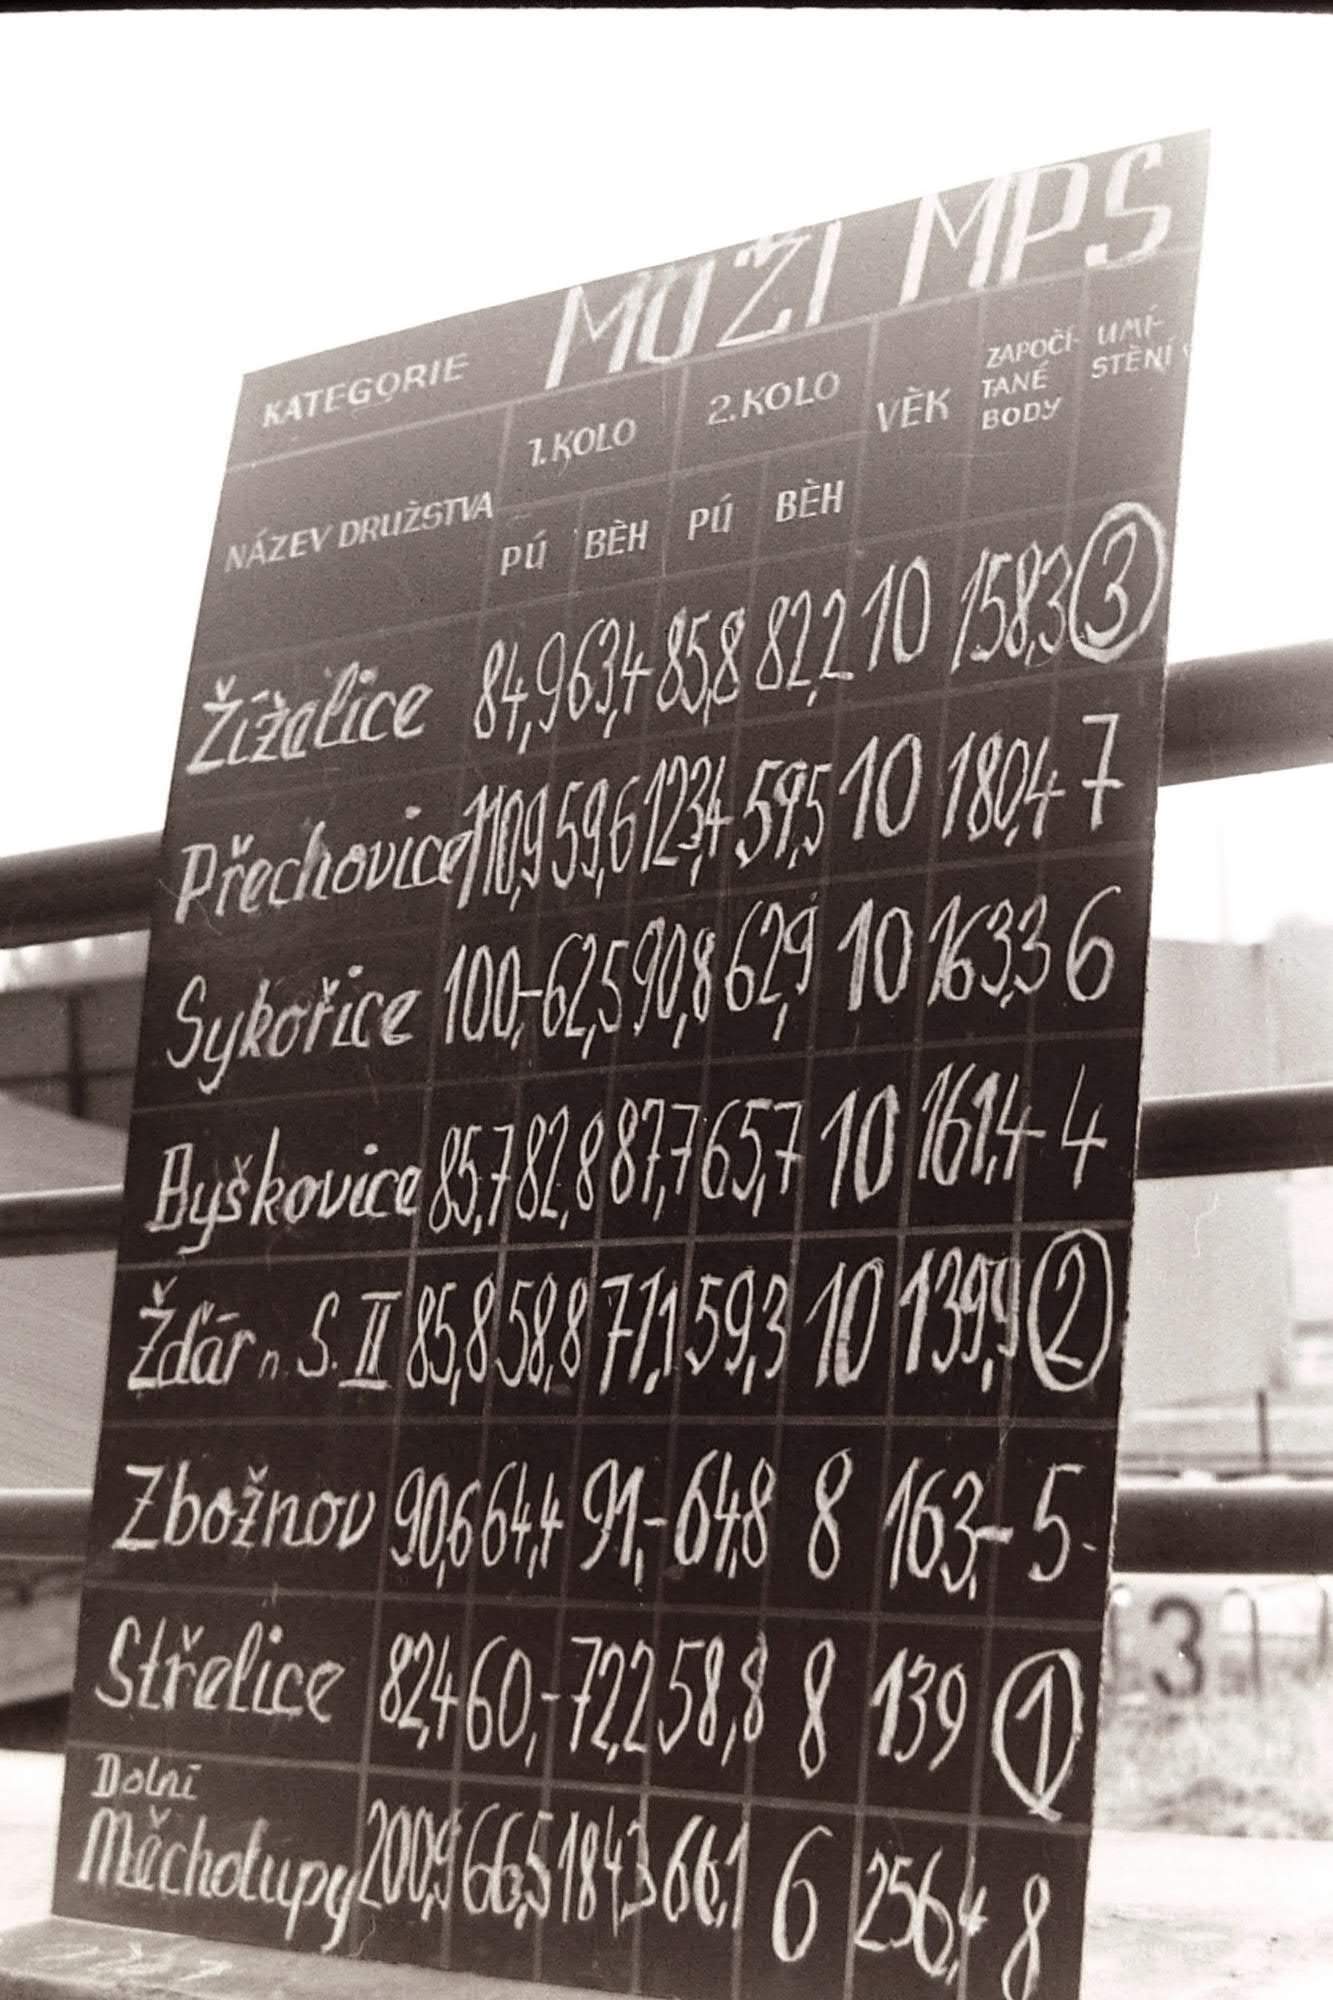 KATEGORIE MUŽI MPS
NÁZEV DRUŽSTVA 1. KOLO 2. KOLO VĚK ZAPOČÍ- UMÍ-
TANÉ STĚNÍ
BODY
PÚ BĚH PÚ BĚH
Žížalice 84,9 63,4 85,8 82,2 10 158,3 3
Přechovice 110,9 59,6 123,4 59,5 10 180,4 7
Sykořice 100,- 62,5 90,8 62,9 10 163,3 6
Byškovice 85,7 82,8 87,7 65,7 10 161,4 4
Žďár n. S. II 85,8 58,8 77,1 59,3 10 139,9 2
Zbožnov 90,6 64,4 91,- 64,8 8 163,- 5
Střelice 82,4 60,- 72,2 58,8 8 139 1
Dolní
Měcholupy 200,9 66,5 184,3 66,1 6 256,4 8
3